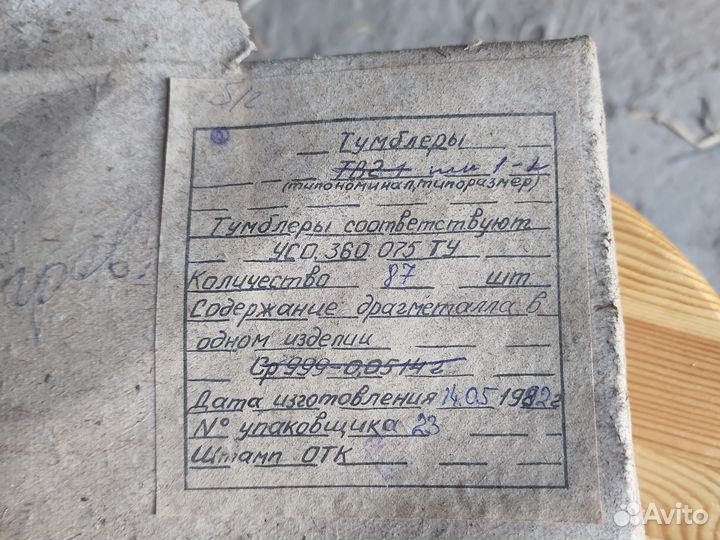 Тумблеры
ТВ2-1 1-2
(типономинал, типоразмер)
Тумблеры соответствуют
УСО. 360 075 ТУ
Количество 87 шт
Содержание драгметалла в
одном изделии
Ср 999-0,0514 г
Дата изготовления 14.05 1992 г
№ упаковщика 23
Штамп ОТК
Avito